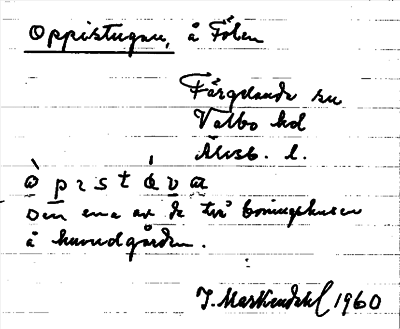 Oppistugan, å Fölen
Färgelanda sn
Valbo hd
Älvsb. l.
ò p ı s t ú v a
Den ena av de två boningshusen
å huvudgården.
J. Markendahl 1960